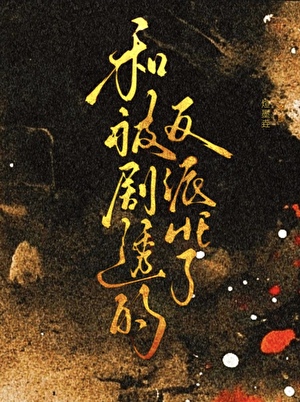 和被剧透的
反派了